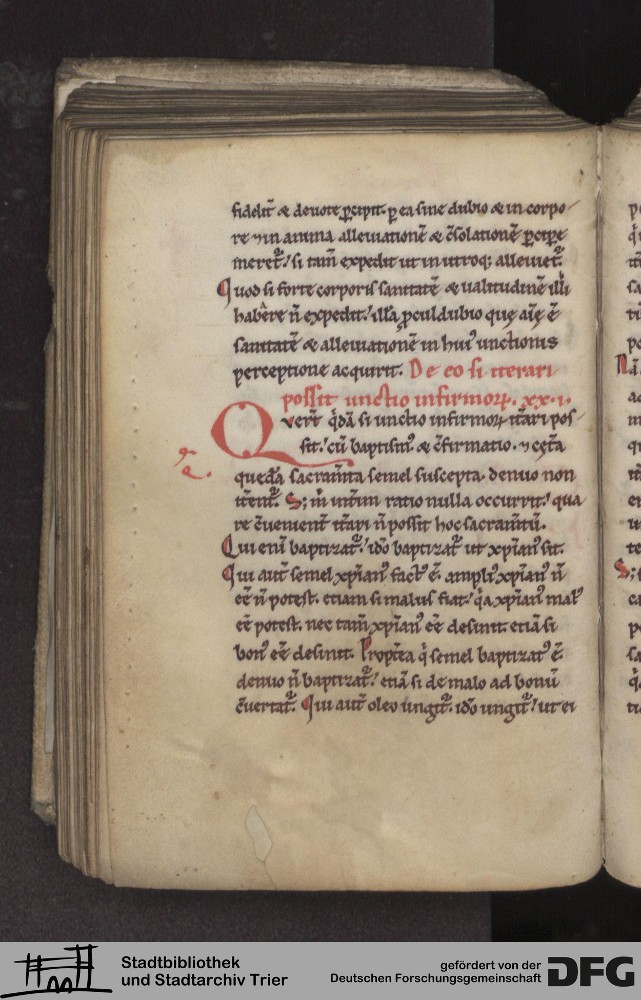 fidelit̅ & deuote ꝑcipit. ꝑ ea sine dubio & in corpo/
re ⁊ in anima alleuiatione̅ & c̅solatione̅ ꝑcipe
meret᷑. si tam̅ expedit ut in utroq; alleuiet᷑.
Quod si forte corporis sanitate̅ & ualitudine̅ illi
habe̅re n̅ expedit. illa̅ ꝓculdubio quę aı̅ę e̅
sanitate̅ & alleuiatione̅ in hui᷒ unctionis
perceptione acquirit. De eo si iterari
possit unctio infirmoꝝ. xx.i.
Quer̅t q̇da̅ si unctio infirmoꝝ it̅ari pos-
sit. cu̅ baptism᷒ & c̅firmatio. ⁊ cęt̅a
queda̅ sacram̅ta semel suscepta. denuo non
it̅ent᷑. S; m̅ int̅im ratio nulla occurrit. qua
re c̅uenient̅ it̅ari n̅ possit hoc sacram̅tu̅.
Qui eni̅ baptizat᷑. ido̅ baptizat᷑ ut xp̅ian᷒ sit.
Qui aut̅ semel xp̅ian᷒ fact᷒ e̅. ampli᷒ xp̅ian᷒ n̅
ee̅ n̅ potest. etiam si malus fiat. q̇a xp̅ian᷒ mal᷒
ee̅ potest. nec tam̅ xp̅ian᷒ ee̅ desinit. etia̅ si
bon᷒ ee̅ desinit. Propt̅ea q̇ semel baptizat᷒ e̅.
denuo n̅ baptizat᷑. etia̅ si de malo ad bonu̅
c̅uertat᷑. Qui aut̅ oleo ungit᷑. ido̅ ungit᷑. ut ei
Stadtbibliothek
und Stadtarchiv Trier
gefördert von der
Deutschen Forschungsgemeinschaft
DFG